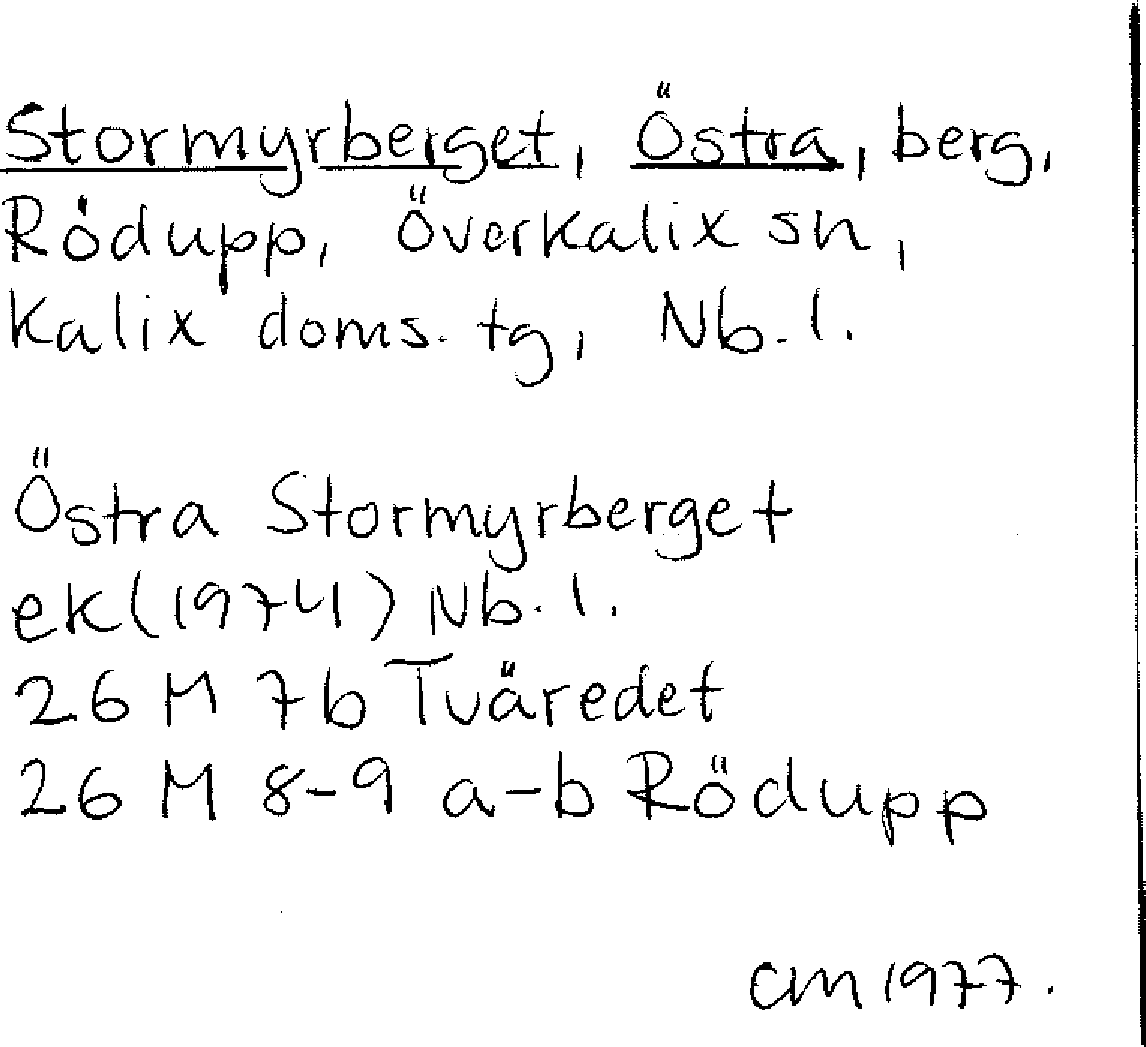 Stormyrberget, Östra, berg,
Rödupp, Överkalix sn,
Kalix doms. tg, Nb. l.
Östra Stormyrberget
ek (1974) Nb. l.
26 M 7b Tväredet
26 M 8-9 a-b Rödupp
CM 1977.